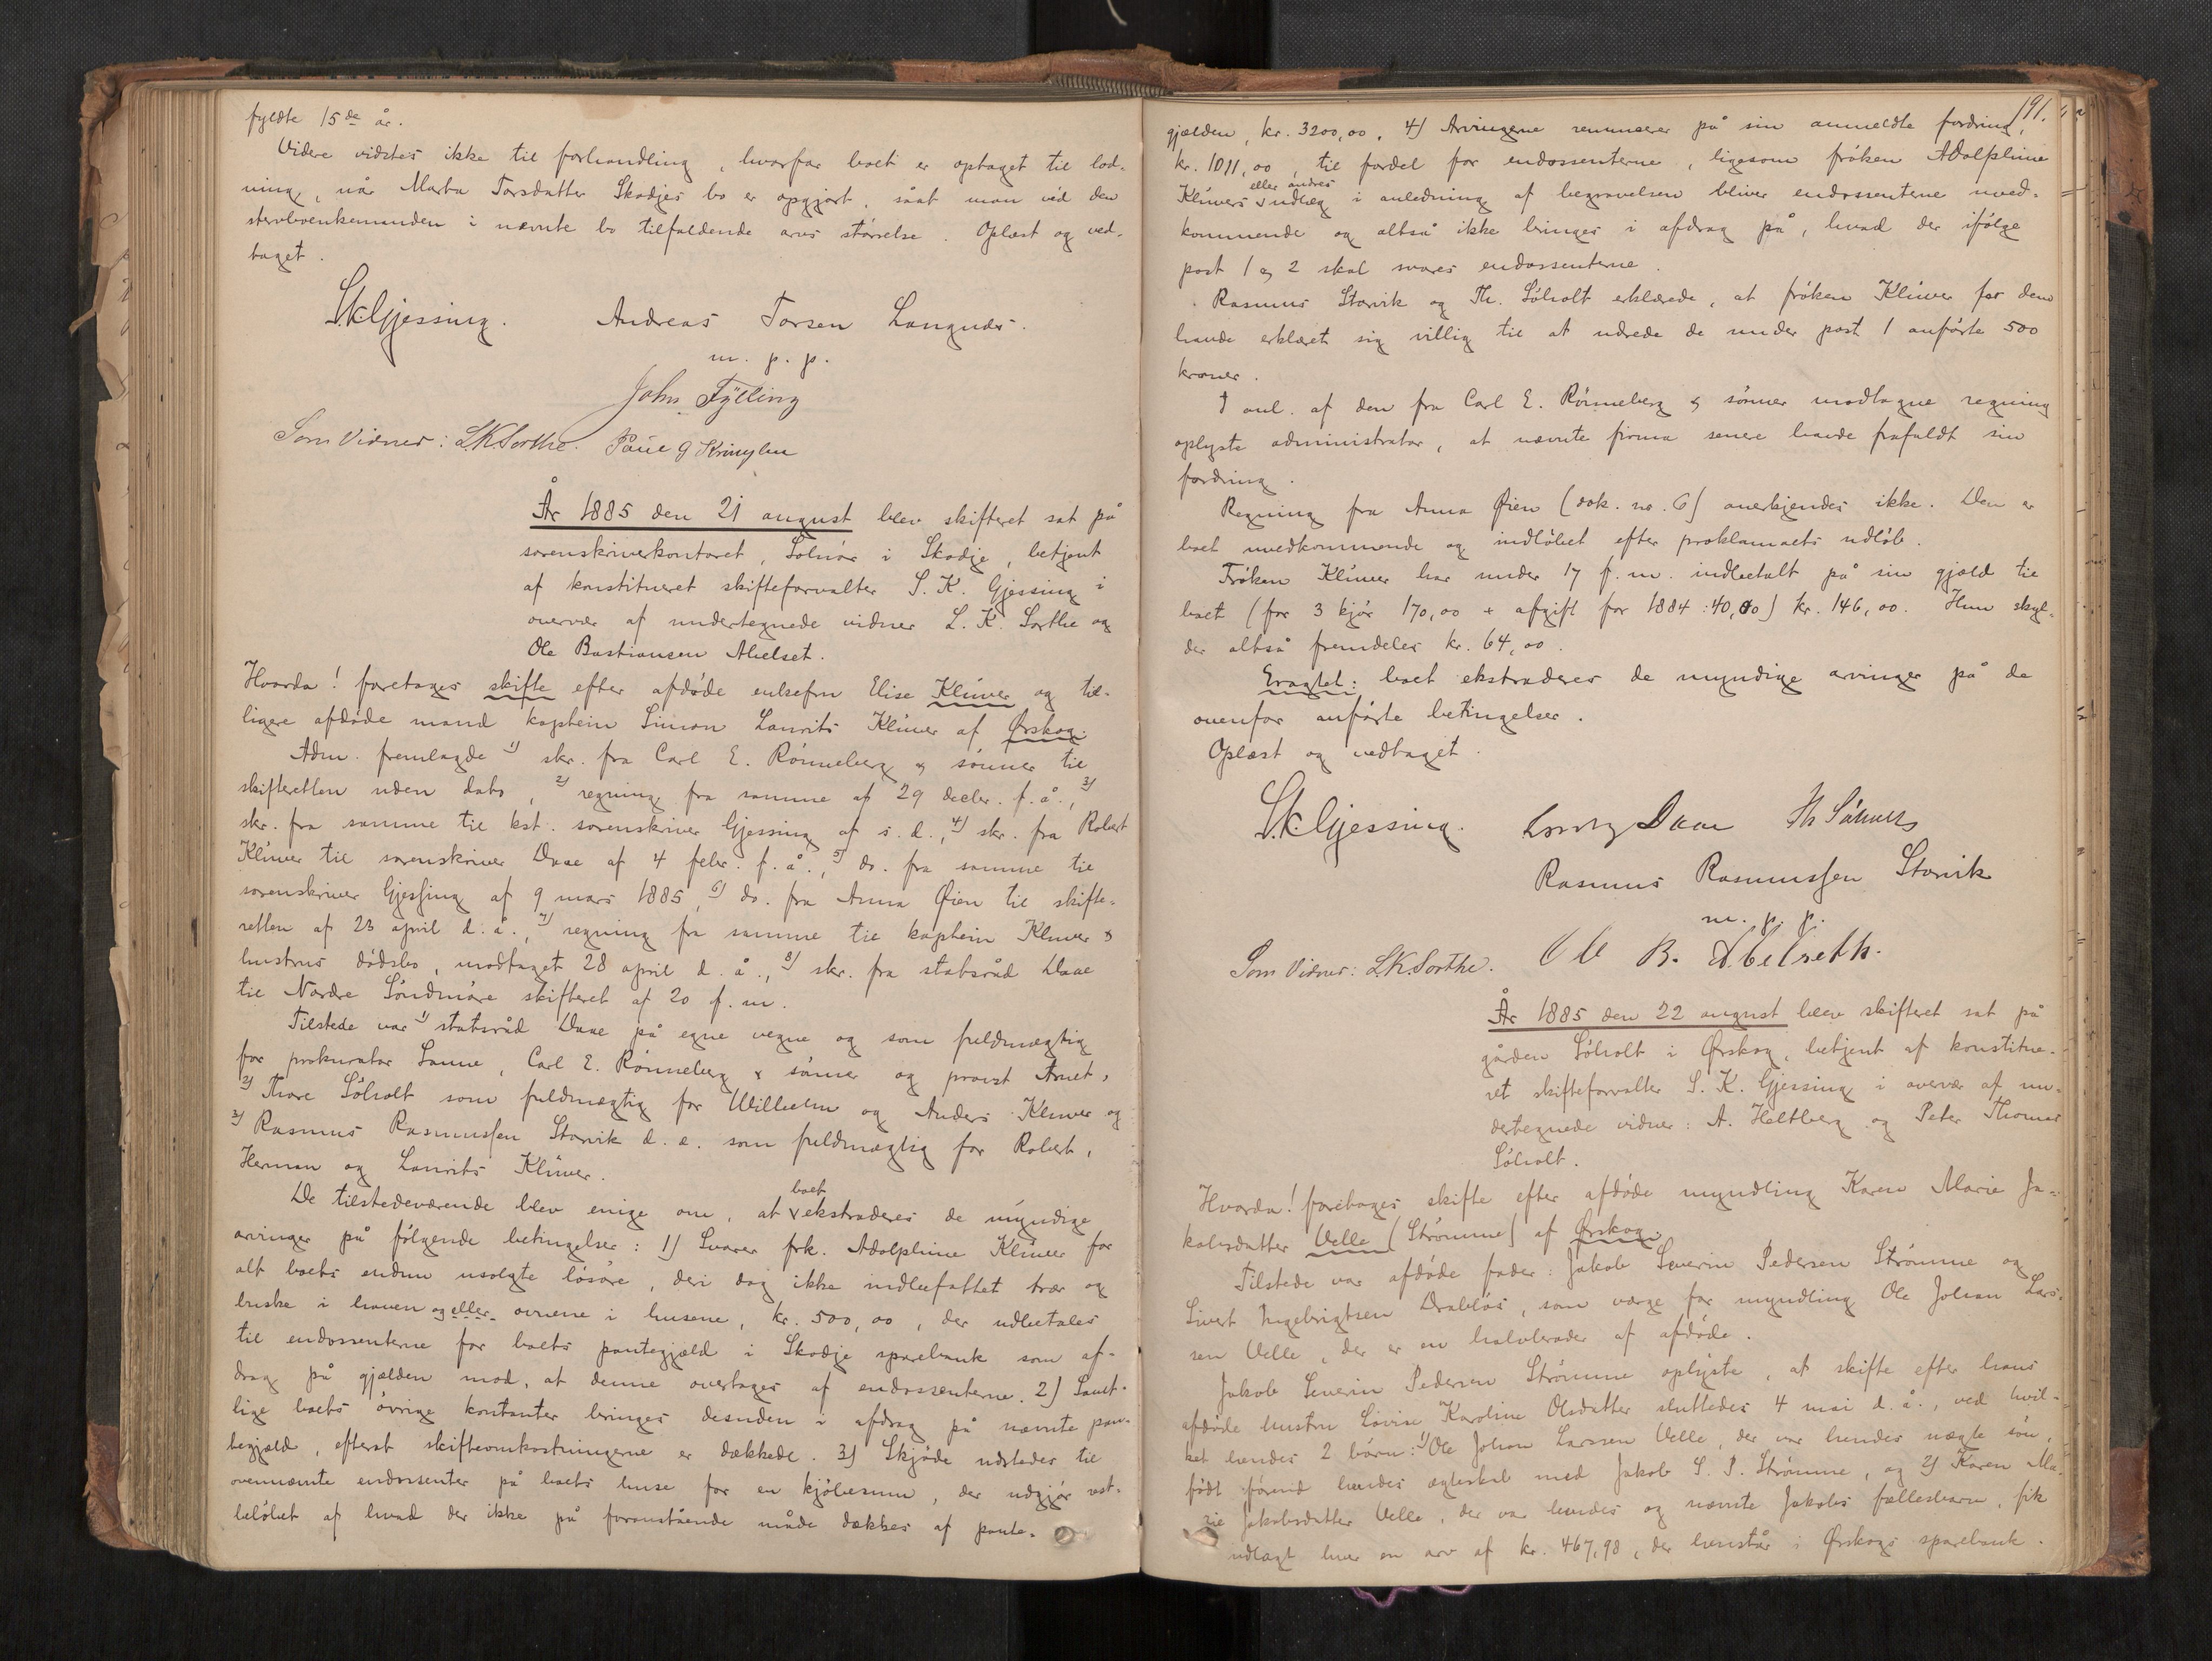 fyldte 15de år.
Videre vidstes ikke til forhandling, hvorfor boet er optaget til lod-
ning, når Marta Torsdatter Skodjes bo er opgjort, såat man véd den
stervboenkemanden i nævnte bo tilfaldende arvs størrelse. Oplæst og ved-
taget.
S.K. Gjessing. Andreas Torsen Langnes.
m. p. p.
John Fylling
Som Vidner: L.K. Sorthe. Paul G
År 1885 den 21 august blev skifteret sat på
sorenskriverkontoret, Solnør i Skodje, betjent
af konstitueret skifteforvalter S. K. Gjessing i
overvær af undertegnede vidner L. K. Sorthe og
Ole Bastiansen Abelset.
Hvorda! foretages skifte efter afdøde enkefru Elise Klüwer og tid-
ligere afdøde mand kaptein Simon Laurits Klüwer af Ørskog.
Adm. fremlagde 1) skr. fra Carl E. Rönneberg & sønner til
skifteretten uden dato, 2) regning fra samme af 29 decbr. f. å., 3)
skr. fra samme til kst. sorenskriver Gjessing af s. d., 4) skr. fra Robert
Klüwer til sorenskriver Daae af 4 febr. f. å., 5) do. fra samme til
sorenskriver Gjessing af 9 mars 1885, 6) do. fra Anna Øien til skifte-
retten af 23 april d. å., 7) regning fra samme til kaptein Kluwer &
hustrus dødsbo, modtaget 28 april d. å., 8) skr. fra statsråd Daae
til Nordre Søndmøre skifteret af 20 f. m.
Tilstede var 1) statsråd Daae på egne vegne og som fuldmægtig
for prokurator Sanne, Carl E. Rönneberg & sønner og provst Arnet,
2) Thore Søholt som fuldmægtig for Wilhelm og Anders Kluwer og
3) Rasmus Rasmussen Storvik d. e. som fuldmægtig for Robert,
Herman og Laurits Klüwer.
De tilstedeværende blev enige om, at boet ekstraderes de myndige
arvinger på følgende betingelser: 1) Svarer frk. Adolphine Klüwer for
alt boets endnu usolgte løsøre, deri dog ikke indbefattet trær og
buske i haven og eller ovnene i husene, kr. 500,00, der udbetales
til endossenterne for boets pantegjæld i Skodje sparebank som af-
drag på gjælden mod, at denne overtages af endossenterne. 2) Samt-
lige boets øvrige kontanter bringes desuden i afdrag på nævnte pan-
tegjæld, efterat skifteomkostningerne er dækkede. 3) Skjøde udstedes til
ovennævnte endossenter på boets huse for en kjøbesum, der udgjør rest-
beløbet af hvad der ikke på foranstående måde dækkes af pante-
191.
gjælden, kr. 3200,00. 4) Arvingerne renuncerer på sin anmeldte fordring,
kr. 1011,00, til fordel for endossenterne, ligesom frøken Adolphine
Klüwers eller andres udlæg i anledning af begravelsen bliver endossenterne uved-
kommende og altså ikke bringes i afdrag på, hvad der ifølge
post 1 og 2 skal svares endossenterne.
Rasmus Storvik og Th. Søholt erklærede, at frøken Klüwer for dem
havde erklæret sig villig til at udrede de under post 1 anførte 500
kroner.
I anl. af den fra Carl E. Rönneberg & sønner modtagne regning
oplyste administrator, at nævnte firma senere havde frafaldt sin
fordring.
Regning fra Anna Øien (dok. nr. 6) anerkjendes ikke. Den er
boet uvedkommende og indløbet efter proklamaets udløb.
Frøken Klüwer har under 17 f. m. indbetalt på sin gjæld til
boet (for 3 kjør 170,00 + afgift for 1884: 40,00) kr. 146,00. Hun skyl-
der altså fremdeles kr. 64,00.
Eragtet: boet ekstraderes de myndige arvinger på de
ovenfor anførte betingelser.
Oplæst og vedtaget.
S.K. Gjessing. Daae Th Søholt
Rasmus Rasmussen Storvik
m. p. p.
Som Vidner: L.K. Sorthe. Ole B. Abelseth.
År 1885 den 22 august blev skifteret sat på
gården Søholt i Ørskog, betjent af konstitue-
ret skifteforvalter S. K. Gjessing i overvær af un-
dertegnede vidner: A. Heltberg og Peter Thomas
Søholt.
Hvorda! foretages skifte efter afdøde myndling Karen Marie Ja-
kobsdatter Velle (Strømme) af Ørskog.
Tilstede var afdøde fader: Jakob Severin Pedersen Strømme og
Sivert Ingebrigtsen Drabløs, som værge for myndling Ole Johan Lars-
sen Velle, der er en halvbroder af afdøde.
Jakob Severin Pedersen Strømme oplyste, at skifte efter hans
afdøde hustru Lovise Karoline Olsdatter sluttedes 4 mai d. å., ved hvil-
ket hendes 2 børn: 1) Ole Johan Larssen Velle, der var hendes uægte søn,
født førend hendes ægteskab med Jakob S. P. Strømme, og 2) Karen Ma-
rie Jakobsdatter Velle, der var hendes og nævnte Jakobs fællesbarn, fik
udlagt hver en arv af kr. 467,98, der henstår i Ørskogs sparebank.